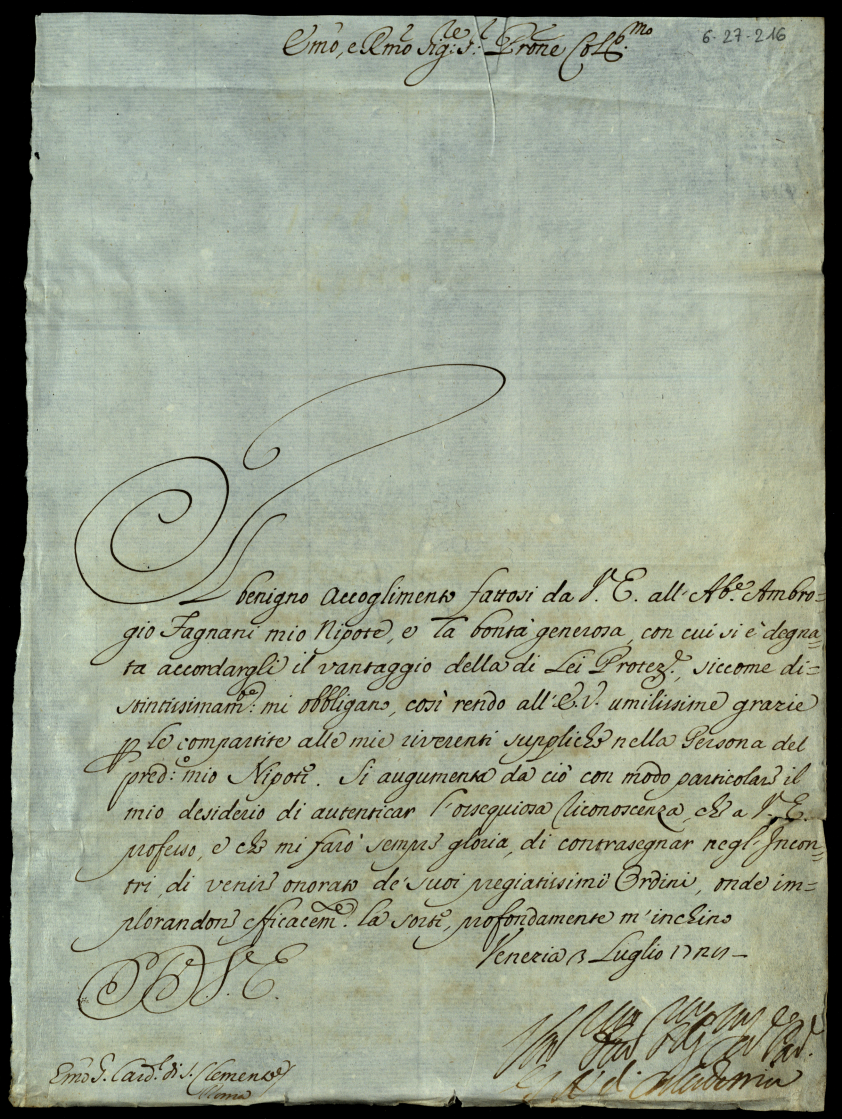 Emo, e Rmo Sig.re S.r Prone Coll.mo
6-27-216
Il benigno Accoglimento fattosi da V. E. all' Abe. Ambro=
gio Fagnani mio Nipote, e la bontà generosa, con cui si è degna=
ta accordargli il vantaggio della di Lei Protez.e, siccome di=
stintissimam.e mi obbligano, così rendo all' E. V. umilissime grazie
p le compartite alle mie riverenti suppliche nella Persona del
pred.o mio Nipote. Si augumenta da ciò con modo particolare il
mio desiderio di autenticar l'ossequiosa riconoscenza, che a V. E.
professo, e che mi farò sempre gloria, di contrasegnar negl' Incon=
tri, di venire onorato de' suoi pregiatissimi Ordini, onde im=
plorandone efficacem.e la sorte, profondamente m'inchino
Venezia 3 Luglio
V. E.
Emo S. Card.l di S. Clemente
Roma